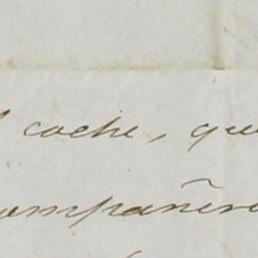 coche, que
compañero